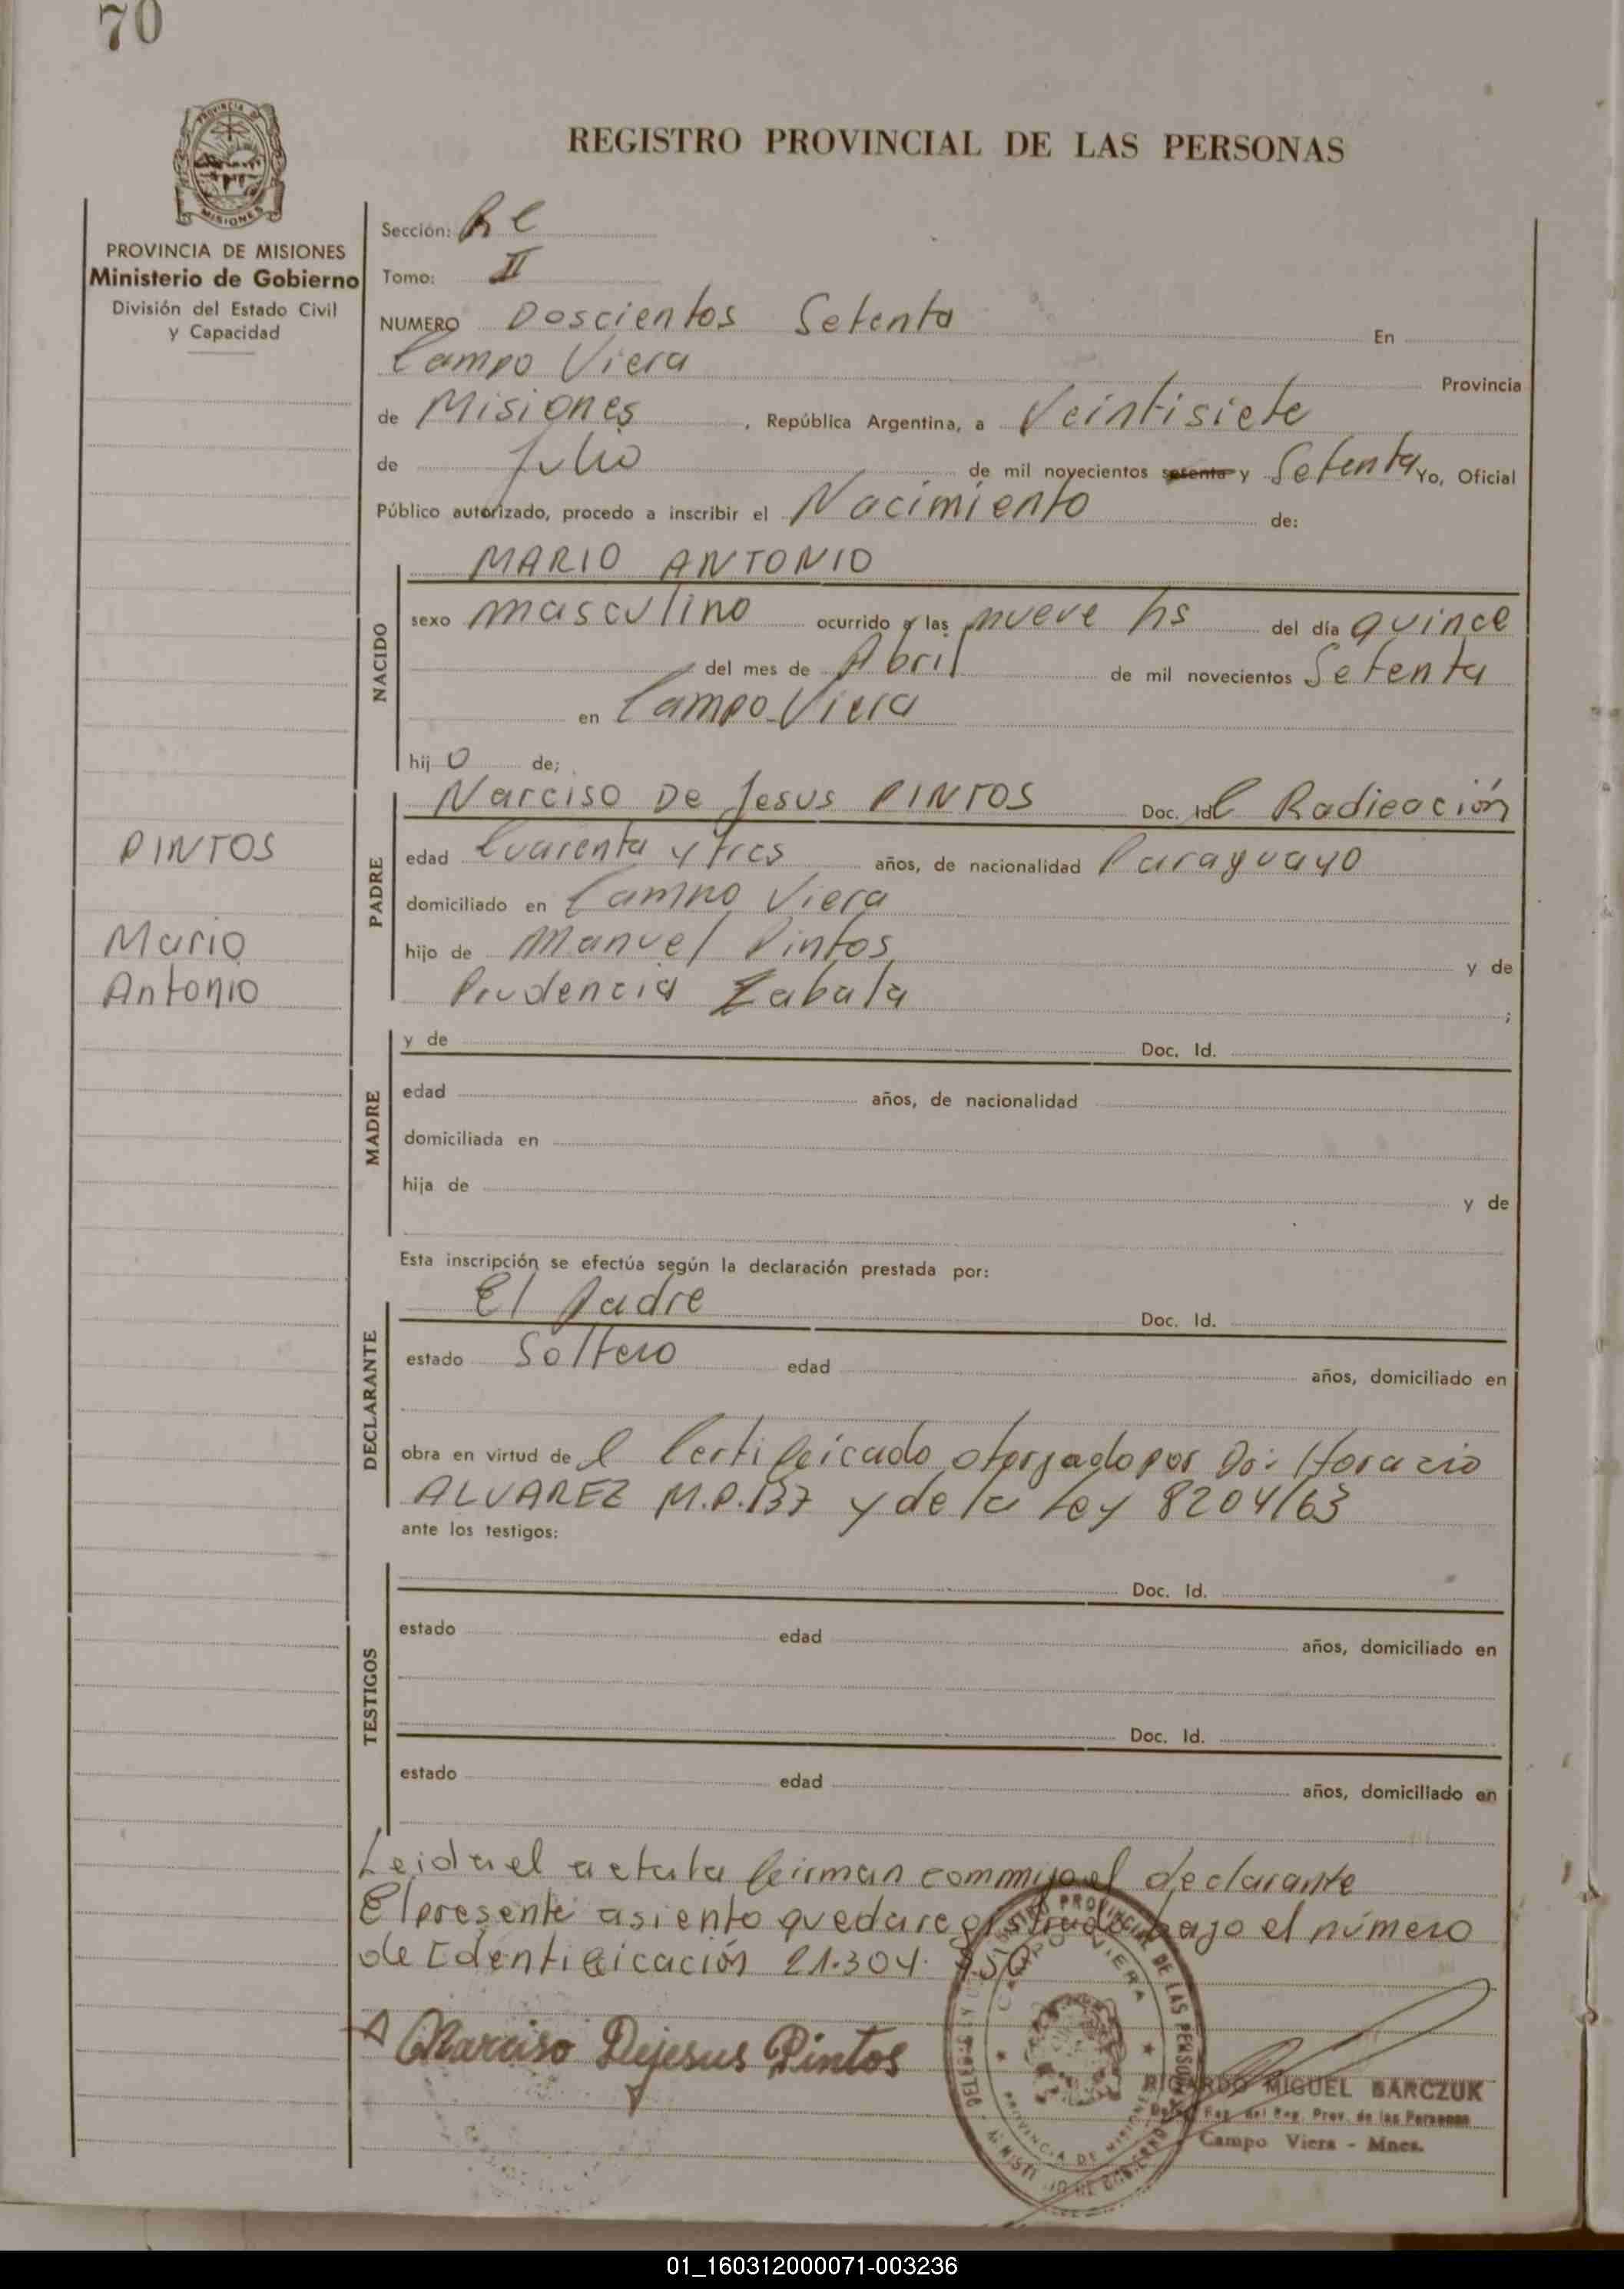 70
PROVINCIA DE
MISIONES
REGISTRO PROVINCIAL DE LAS PERSONAS
PROVINCIA DE MISIONES
Ministerio de Gobierno
División del Estado Civil
y Capacidad
Sección: RC
Tomo: II
NUMERO Doscientos Setenta En
Campo Viera Provincia
de Misiones, República Argentina, a Veintisiete
de Julio de mil novecientos sesenta y Setenta Yo, Oficial
Público autorizado, procedo a inscribir el Nacimiento de:
NACIDO
MARIO ANTONIO
sexo masculino ocurrido a las nueve hs del día quince
del mes de Abril de mil novecientos Setenta
en Campo Viera
hij o de;
PADRE
Narciso De Jesus PINTOS Doc. Id. C Radicación
edad Cuarenta y tres años, de nacionalidad Paraguayo
domiciliado en Campo Viera
hijo de Manuel Pintos y de
Prudencia Zabala ;
PINTOS
Mario
Antonio
MADRE
y de Doc. Id.
edad años, de nacionalidad
domiciliada en
hija de y de
Esta inscripción se efectúa según la declaración prestada por:
DECLARANTE
El Padre Doc. Id.
estado Soltero edad años, domiciliado en
obra en virtud de l Certificado otorgado por Dr: Horacio
ALVAREZ M.P.137 y de la Ley 8204/63
ante los testigos:
TESTIGOS
Doc. Id.
estado edad años, domiciliado en
Doc. Id.
estado edad años, domiciliado en
Leida el acta la firman commigo el declarante
El presente asiento queda registrado bajo el número
de Identificación 21.304.
Narciso Dejesus Pintos
PROVINCIAL DE LAS PERSONAS
CAMPO VIERA
PROVINCIA DE MISIONES
RICARDO MIGUEL BARCZUK
Reg. del Reg. Prov. de las Personas
Campo Viera - Mnes.
01_160312000071-003236